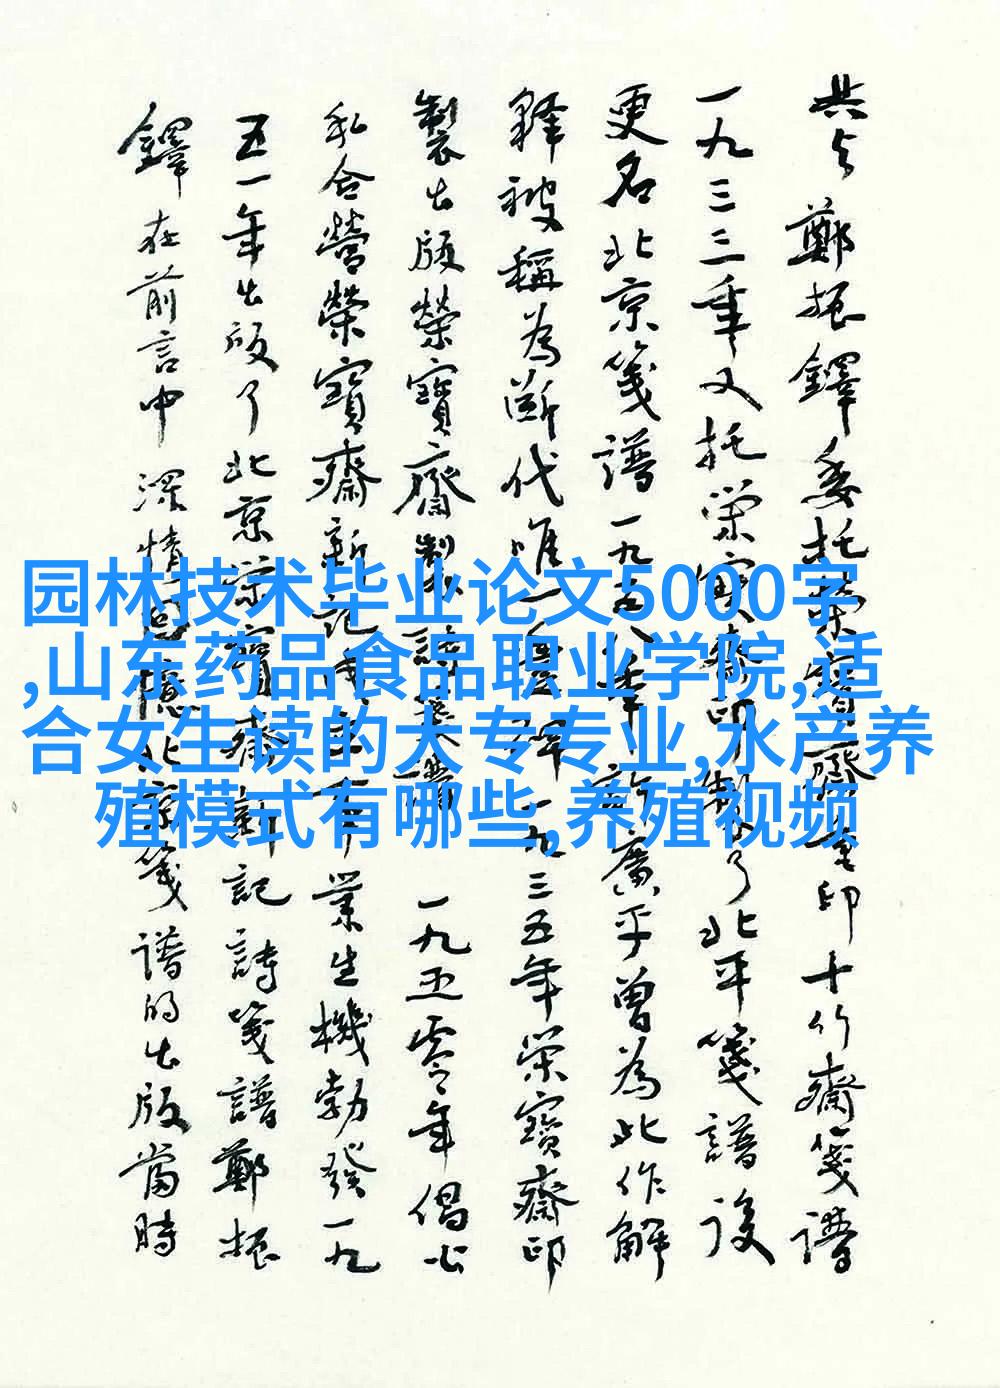 共与鄭振鐸委托榮寶齋重印十竹齋箋譜
一九三三年又托榮寶齋印製了北平箋譜後
更名北京箋譜一九五八年許廣平曾為此作解
釋被稱為斷代唯一一九三五年榮寶齋印
製出版榮寶齋製詩箋譜一九五零年倡公
私合營榮寶齋新記業生機勃發一九
五一年出版了北京榮寶齋新記詩箋譜鄭振
鐸在前言中深情回憶北京箋譜的出版當時
园林技术毕业论文5000字
,山东药品食品职业学院,适
合女生读的大专专业,水产养
殖模式有哪些,养殖视频